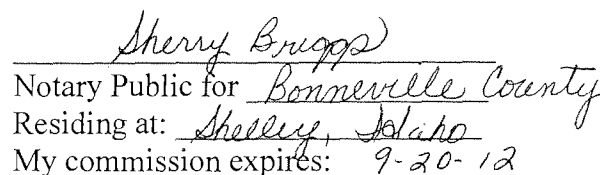 Sherry Briggs
Notary Public for Bonneville County
Residing at: Shelley, Idaho
My commission expires: 9-20-12